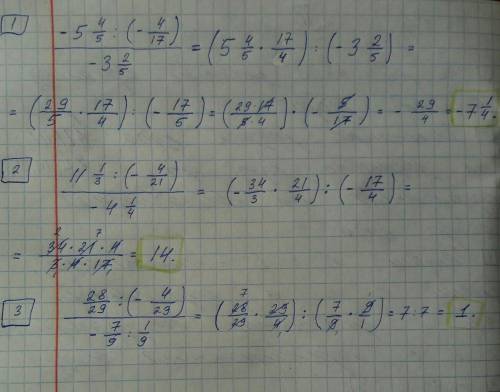 1 (-5 4/5 : (-4/17)) / (-3 2/5) = (5 4/5 · 17/4) : (-3 2/5) =
= (29/5 · 17/4) : (-17/5) = (29·17/5·4) · (-5/17) = -29/4 = -7 1/4.
2 (11 1/3 : (-4/21)) / (-4 1/4) = (-34/3 · 21/4) : (-17/4) =
= 34 · 21 · 4 / 3 · 4 · 17 = 14.
3 (28/29 : (-4/29)) / (-7/9 : 1/9) = (28/29 · 29/4) : (7/9 · 9/1) = 7:7 = 1.